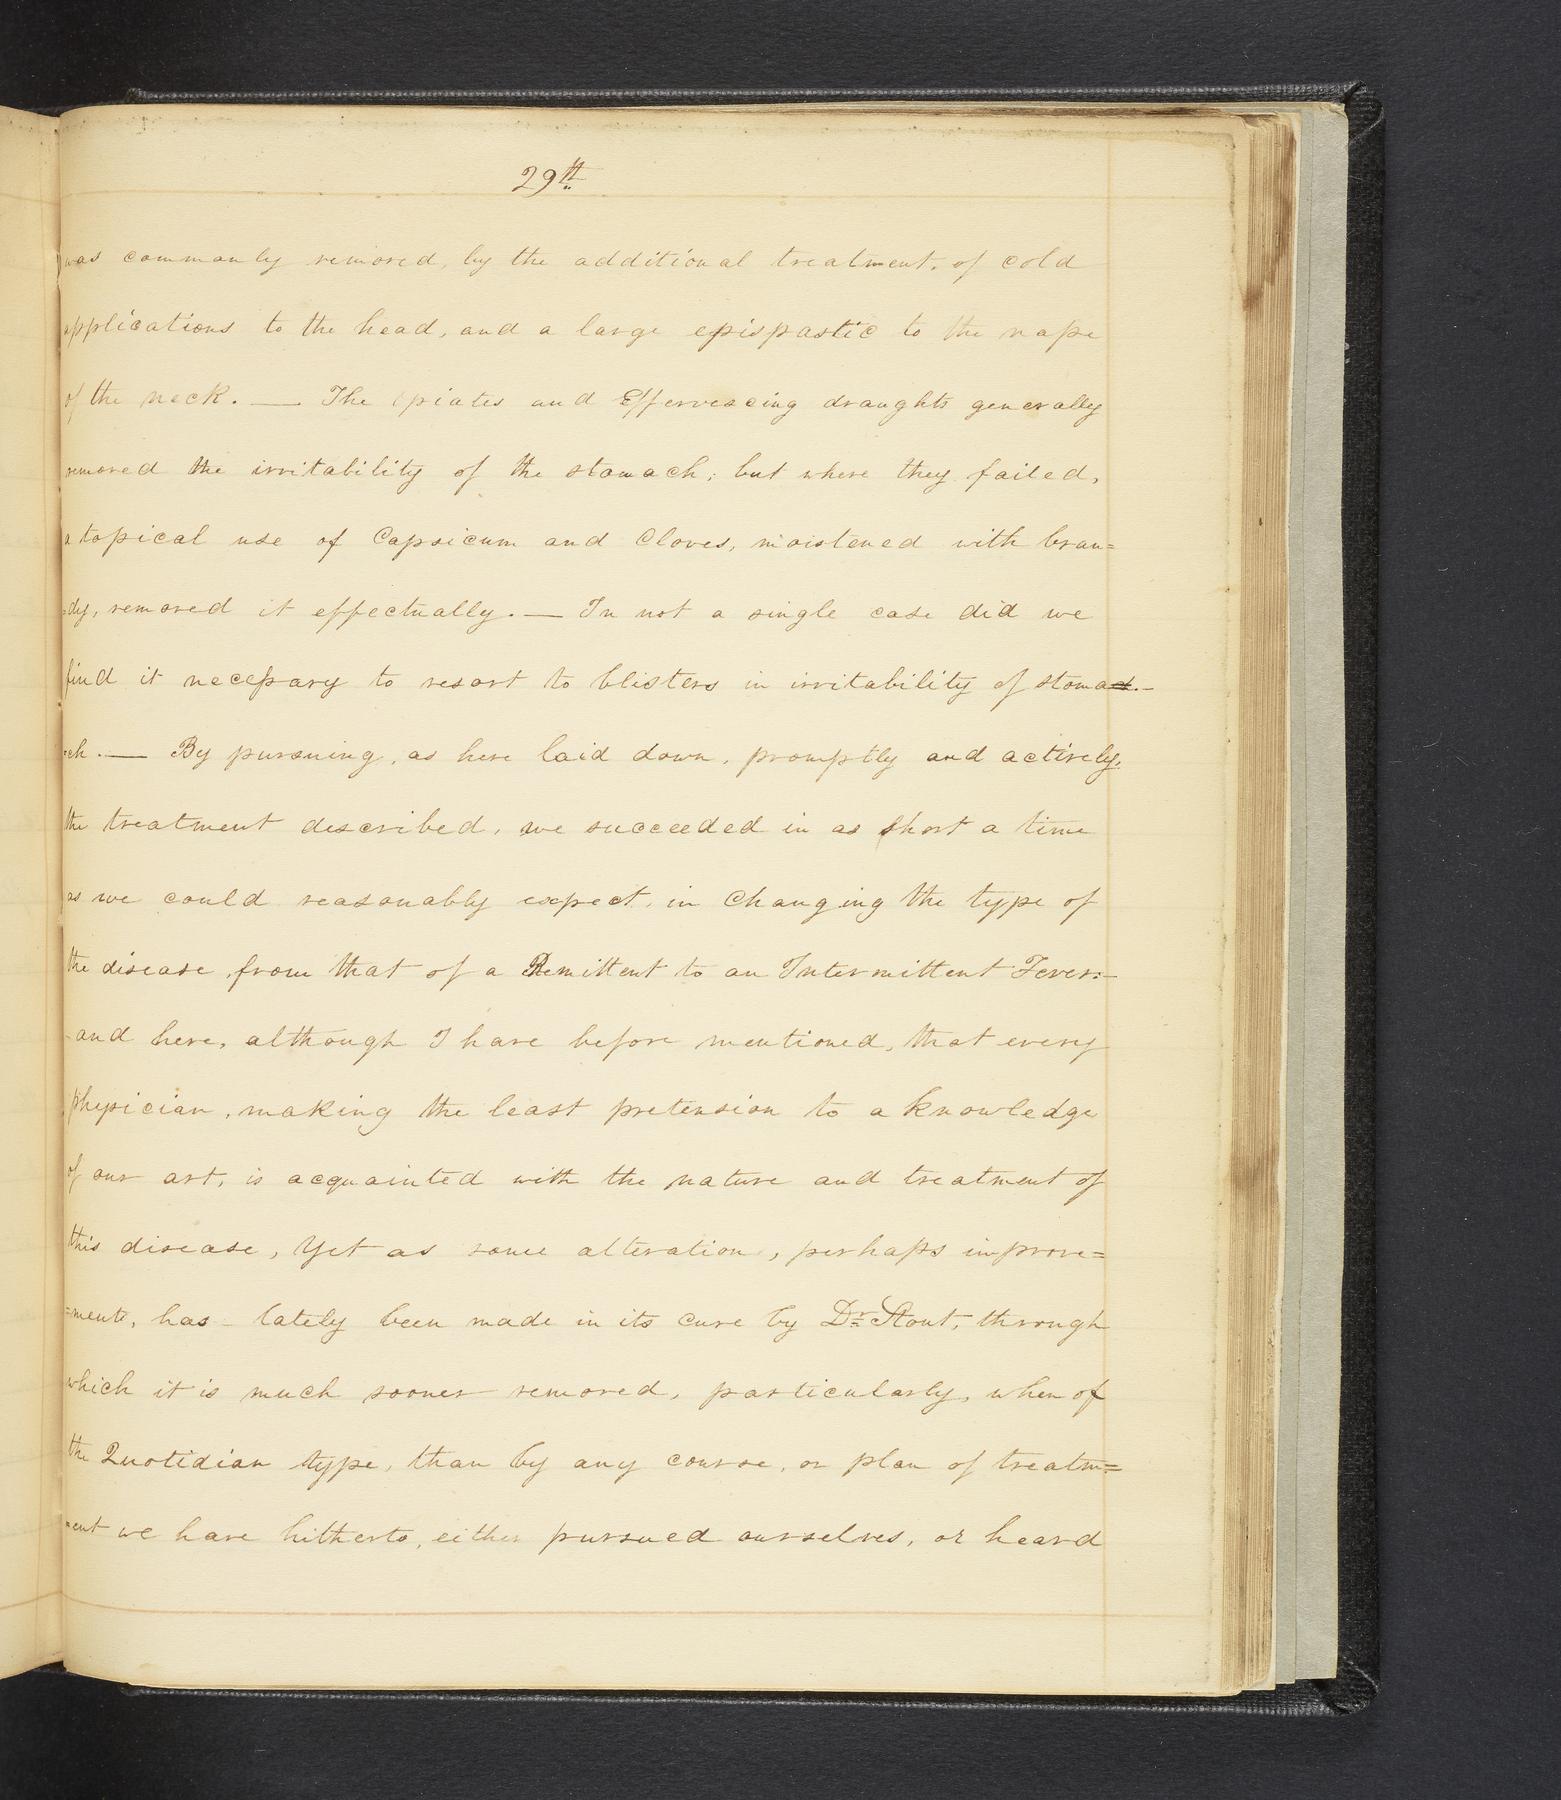 29th
was commonly removed, by the additional treatment, of cold
applications to the head, and a large epispastic to the nape
of the neck. — The opiates and Effervescing draughts generally
removed the irritability of the stomach; but where they failed,
a topical use of Capsicum and Cloves, moistened with bran=
=dy, removed it effectually. — In not a single case did we
find it necessary to resort to blisters in irritability of stoma-
=ch. — By pursuing, as here laid down, promptly and actively,
the treatment described, we succeeded in as short a time
as we could reasonably expect, in changing the type of
the disease, from that of a Remittent to an Intermittent Fever:—
and here, although I have before mentioned, that every
physician, making the least pretension to a knowledge
of our art, is acquainted with the nature and treatment of
this disease, Yet as some alteration, perhaps improve=
=ment, has lately been made in its cure by Dr. Stout, through
which it is much sooner removed, particularly, when of
the Quotidian type, than by any course, or plan of treatm=
=ent we have hitherto, either pursued ourselves, or heard